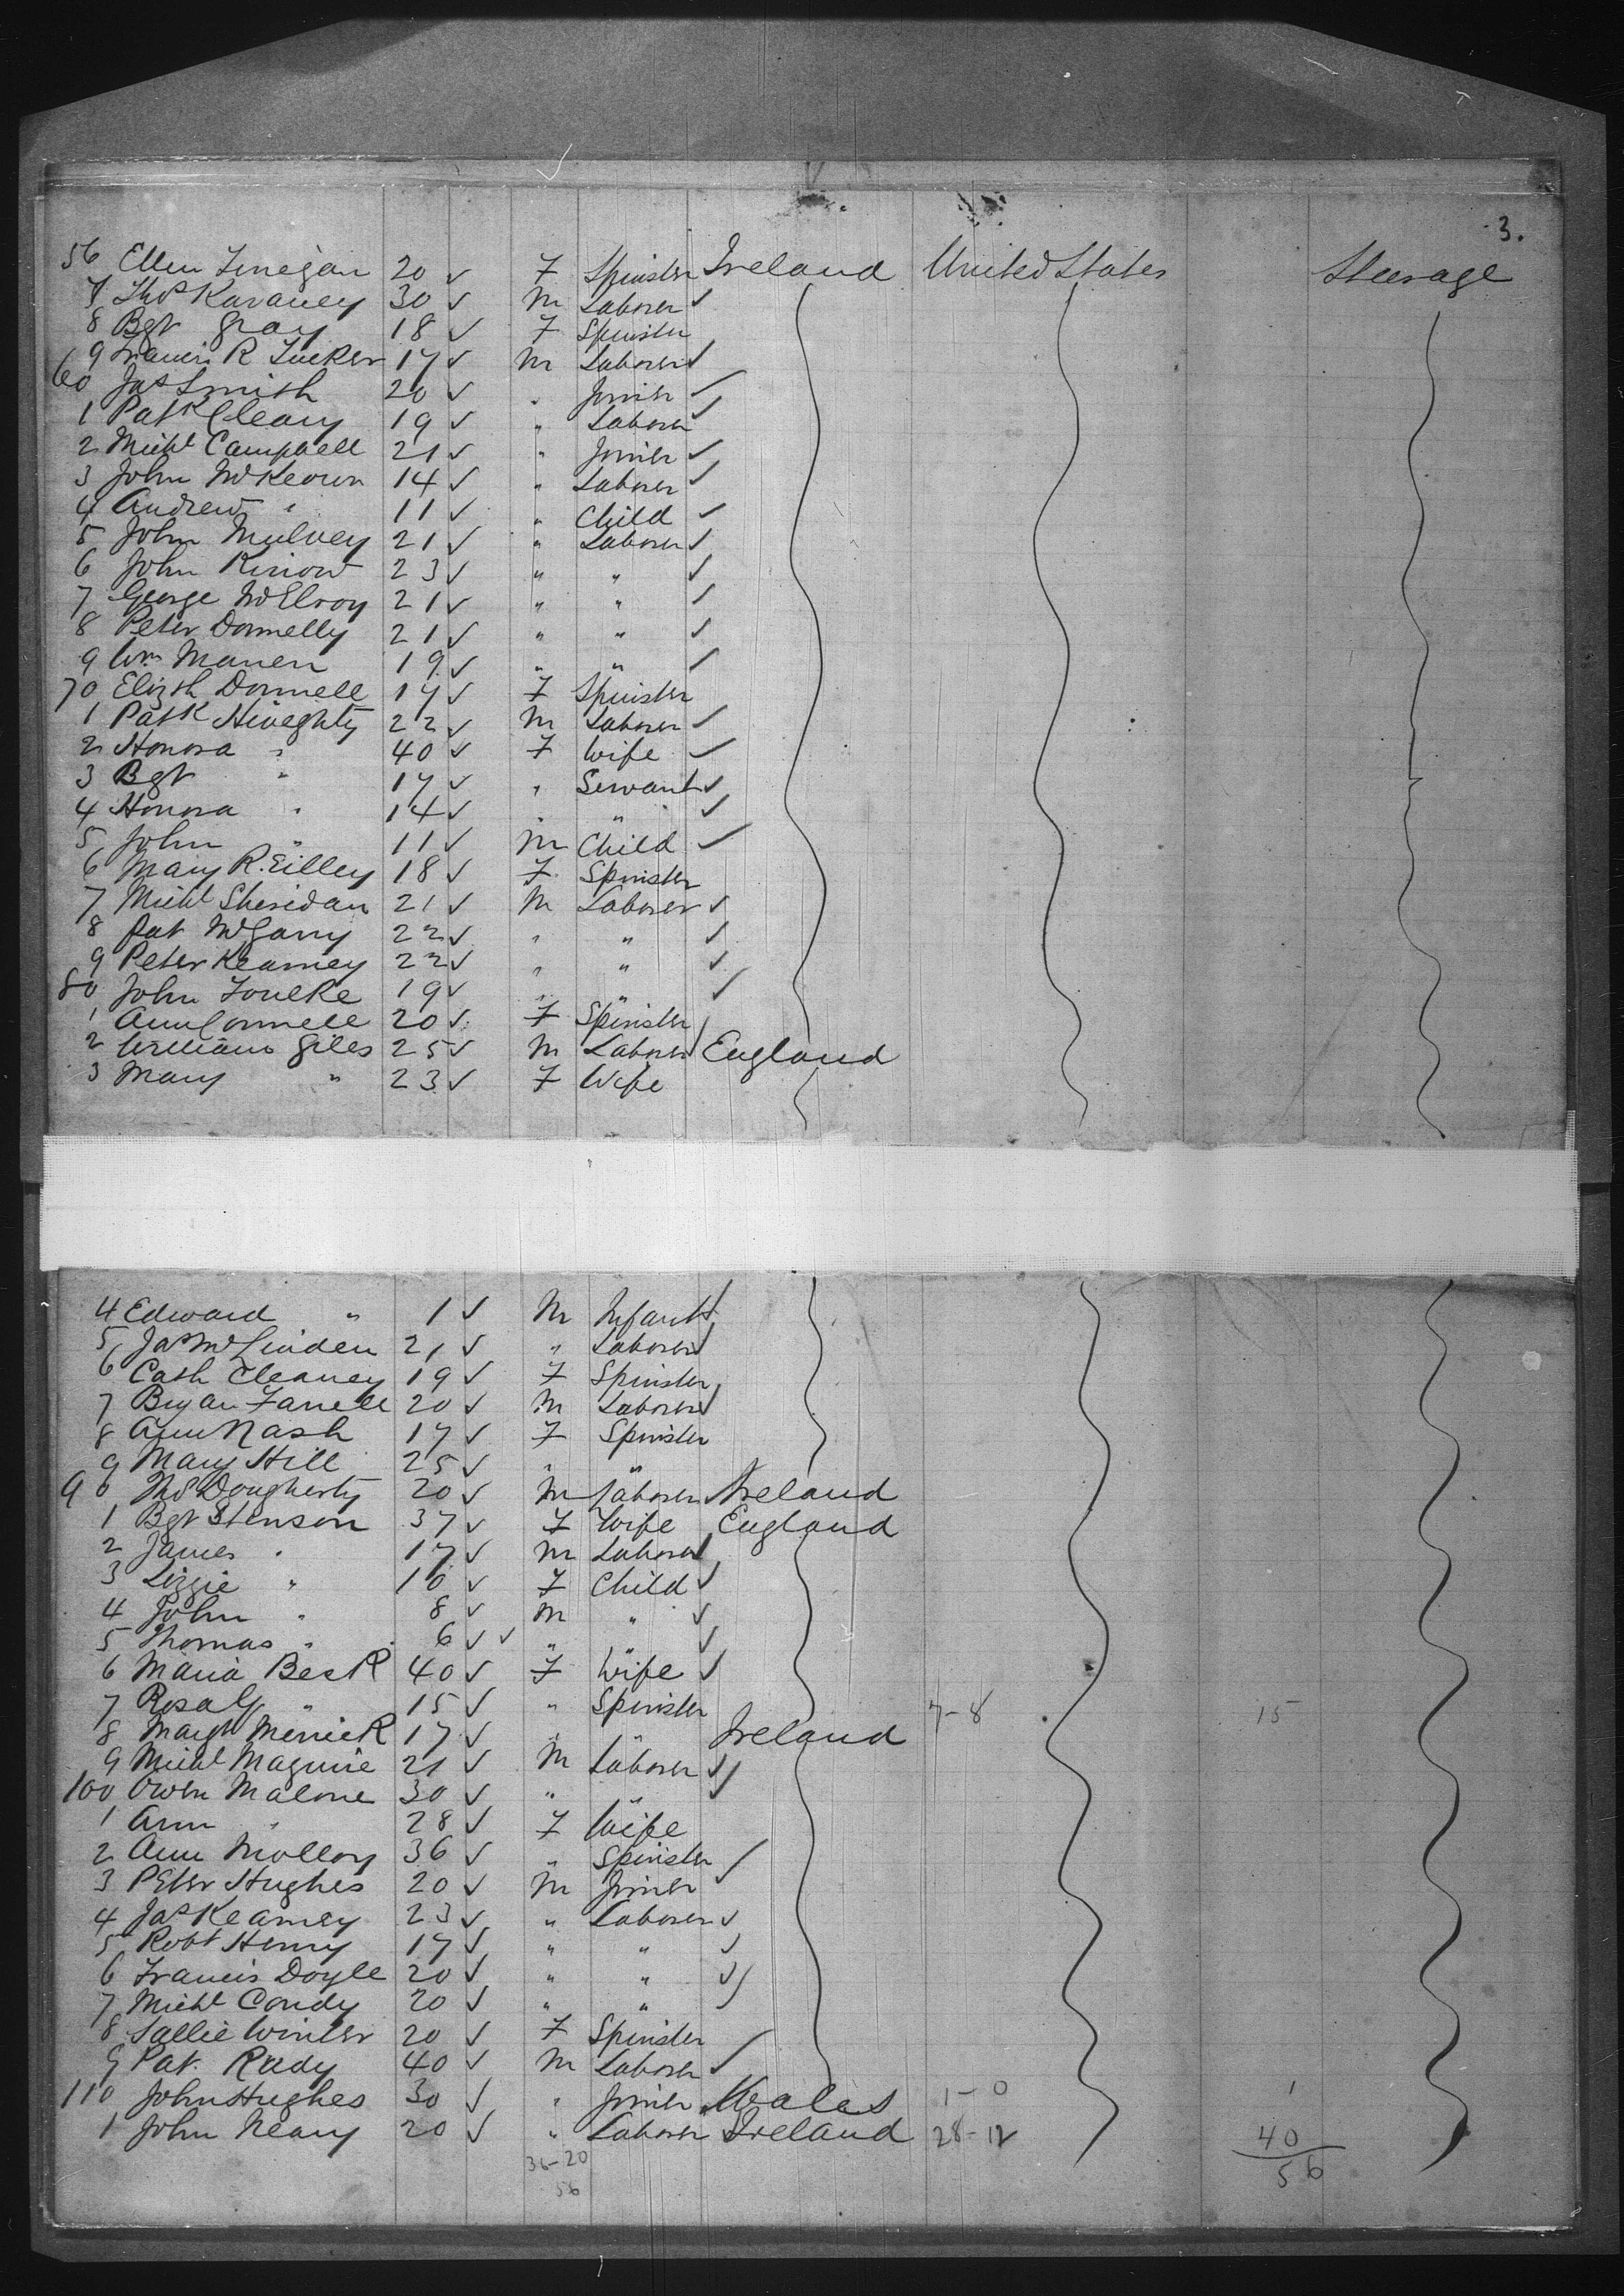 3.
56 Ellen Finegan 20 ✓ F Spinster Ireland United States Steerage
7 Thos Kavaney 30 ✓ M Laborer ✓
8 Bgt Gray 18 ✓ F Spinster
9 Francis R Tucker 17 ✓ M Laborer ✓
60 Jas Smith 20 ✓ " Joiner ✓
1 Patk Cleary 19 ✓ " Laborer ✓
2 Michl Campbell 21 ✓ " Joiner ✓
3 John McKeown 14 ✓ " Laborer ✓
4 Andrew " 11 ✓ " Child ✓
5 John Mulvey 21 ✓ " Laborer ✓
6 John Kinow 23 ✓ " " ✓
7 George McElroy 21 ✓ " " ✓
8 Peter Donnelly 21 ✓ " " ✓
9 Wm Manen 19 ✓ " " ✓
70 Elizth Donnell 17 ✓ F Spinster
1 Patk 22 ✓ M Laborer ✓
2 Honora " 40 ✓ F Wife ✓
3 Bgt " 17 ✓ " Servant ✓
4 Honora " 14 ✓ " " ✓
5 John " 11 ✓ M Child ✓
6 Mary R.Eilley 18 ✓ F Spinster
7 Michl Sheridan 21 ✓ M Laborer ✓
8 Pat McGarry 22 ✓ " " ✓
9 Peter Kearney 22 ✓ " " ✓
80 John 19 ✓ " " ✓
1 Ann Connell 20 ✓ F Spinster
2 William Giles 25 ✓ M Laborer ✓ England
3 Mary " 23 ✓ F Wife
4 Edward " 1 ✓ M Infant ✓
5 Jas McLinden 21 ✓ " Laborer ✓
6 Cath Cleaney 19 ✓ F Spinster
7 Bryan Farrell 20 ✓ M Laborer ✓
8 Ann Nash 17 ✓ F Spinster
9 Mary Hill 25 ✓ " "
90 Thos Dougherty 20 ✓ M Laborer ✓ Ireland
1 Bgt Stenson 37 ✓ F Wife England
2 James " 17 ✓ M Laborer ✓
3 Lizzie " 10 ✓ F Child ✓
4 John " 8 ✓ M " ✓
5 Thomas " 6 ✓ ✓ " " ✓
6 Maria Besk 40 ✓ F Wife ✓
7 " 15 ✓ " Spinster 7-8 15
8 Margt Merrick 17 ✓ " " Ireland
9 Michl Maguire 21 ✓ M Laborer ✓
100 Owen Malone 30 ✓ " " ✓
1 Ann " 28 ✓ F Wife
2 Ann Molloy 36 ✓ " Spinster
3 Peter Hughes 20 ✓ M Joiner ✓
4 Jas Kearney 23 ✓ " Laborer ✓
5 Robt Henry 17 ✓ " " ✓
6 Francis Doyle 20 ✓ " " ✓
7 Michl Condy 20 ✓ " " ✓
8 Sallie Winter 20 ✓ F Spinster
9 Pat. Rudy 40 ✓ M Laborer ✓
110 John Hughes 30 ✓ " Joiner Wales 1-0 1
1 John Neary 20 ✓ " Laborer Ireland 28-12 40
36-20 56
56